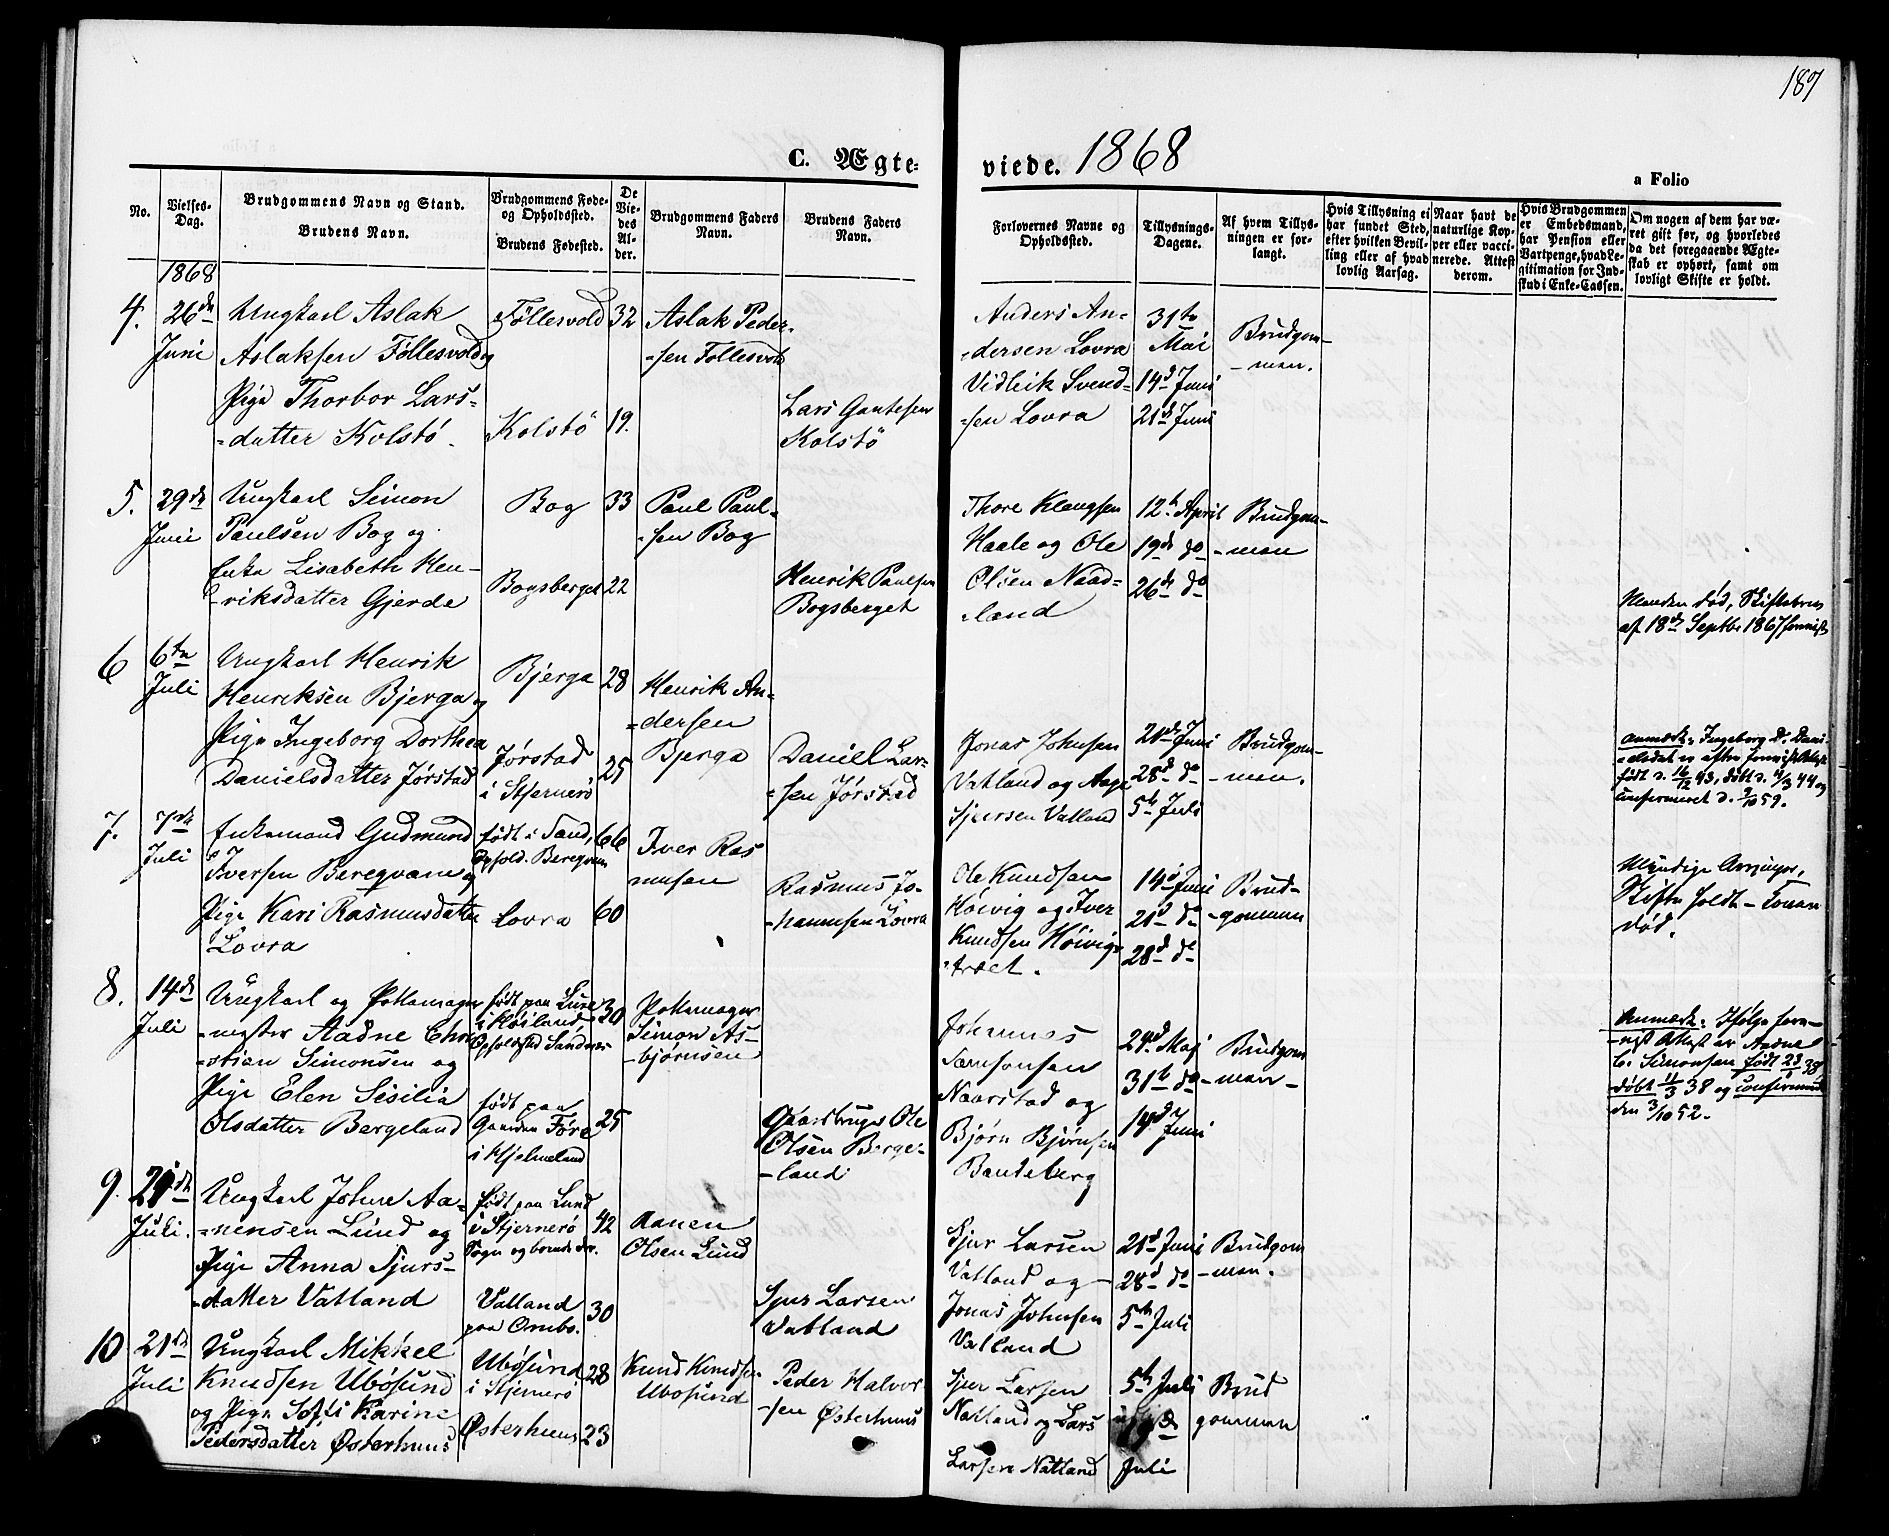 187
C. Ægte-
viede. 1868
a Folio
No.
Vielses-
Dag.
Brudgommens Navn og Stand.
Brudens Navn.
Brudgommens Føde-
og Opholdssted.
Brudens Fødested.
De
Vie-
des
Al-
der.
Brudgommens Faders
Navn.
Brudens Faders
Navn.
Forlovernes Navne og
Opholdssted.
Tillysnings-
Dagene.
Af hvem Tillys-
ningen er for-
langt.
Hvis Tillysning ei
har fundet Sted,
efter hvilken Bevil-
ling eller af hvad
lovlig Aarsag.
Naar havt de
naturlige Kop-
per eller vacci-
nerede. Attest
derom.
Hvis Brudgommen
er Embedsmand,
har Pension eller
Vartpenge, hvad Le-
gitimation for Ind-
skud i Enke-Cassen.
Om nogen af dem har væ-
ret gift før, og hvorledes
da det foregaaende Ægte-
skab er ophørt, samt om
lovligt Skifte er holdt.
1868
4.
26de
Juni
Ungkarl Aslak
Aslaksen Föllesvold og
Pige Thorbor Lars-
=datter Kolstö.
Föllesvold
Kolstö
32
19.
Aslak Peder-
=sen Follesvold
Lars Gautesen
Kolstö
Anders An-
=dersen Lovra
Vidleik Svend=
=sen Lovra
31te
Mai
14d Juni
21de Juni
Brudgom-
-men.
5.
29de
Juni
Ungkarl Simon
Paulsen Bog og
Enke Lisabeth Hen-
-riksdatter Gjerde
Bog
Bogsberget
33
22
Paul Paul-
-sen Bog
Henrik Paulsen
Bogsberget
Thore Klengsen
Haale og Ole
Olsen Naad=
=land
12te April
19de do
26de do
Brudgom-
-men
Manden död, Skiftebrev
af 18de Septbr 1867 forevist
6
6te
Juli
Ungkarl Henrik
Henriksen Bjerga og
Pige Ingeborg Dorthea
Danielsdatter Jørstad
Bjerga
Jørstad
i Stjernerö
28
25
Henrik An-
=dersen
Bjerga
Daniel Lar-
=sen Jørstad
Jonas Johnsen
Vatland og Aage
Sjursen Vatland
21de Juni
28d do
5te Juli
Brudgom-
-men.
Anmærk: Ingeborg D. Dani-
=elsdat er efter forevist Attest
født d. 16/12 43, döbt d. 4/3 44 og
confirmeret d. 9/10 59.
7.
7de
Juli
Enkemand Gudmund
Iversen Bereqvam og
Pige Kari Rasmusdatter
Lovra
født i Sand,
Ophold. Bereqvam
Lovra
66
60
Iver Ras
musen
Rasmus Jo-
-hannsen Lovra
Ole Knudsen
Höivig og Iver
Knudsen Höivig-
træet.
14d Juni
21d do
28d do
Brud-
-gommen
Myndige Arvinger,
Skifte holdt - Konen
död.
8.
14de
Juli
Ungkarl og Pottemager
-mester Aadne Chri
=stian Simonsen og
Pige Elen Sesilia
Olsdatter Bergeland
født paa Lure
i Høiland
Opholdssted Sandnes
født paa
Gaarden Före
i Hjelmeland
30
25
Pottemager
Simon As-
-bjørnsen
Gaardbruger Ole
Olsen Berge-
-land
Johannes
Samsonsen
Naarstad og
Bjørn Bjørnsen
Bandeberg
24de Maj
31te do
14d Juni
Brudgom
-men-
Anmærk: Ifølge fore-
-vist Attest er Aadne
C. Simonsen født 28/1 38
döbt 11/3 38 og confirmeret
den 3/10 52.
9.
21de
Juli.
Ungkarl Johne Aa-
-nensen Lund og
Pige Anna Sjurs-
-datter Vatland
født paa Lund
i Stjernerö
Sogn og boende der.
Vatland
paa Ombo.
42
30
Aanen
Olsen Lund
Sjur Larsen
Vatland
Sjur Larsen
Vatland og
Jonas Johnsen
Vatland
21d Juni
28d do
5te Juli
Brudgom
-men.
10
21de
Juli
Ungkarl Mikkel
Knudsen Ubøsund
og Pige Sofi Karine
Pedersdatter Østerhuus
Ubøsund
i Stjernerö
Østerhuus
28
23
Knud Knudsen
Ubøsund
Peder Halvor
-sen Østerhuus
Sjur Larsen
Natland og Lars
Larsen Natland
5te Juli
19de
Juli
Brud
gommen